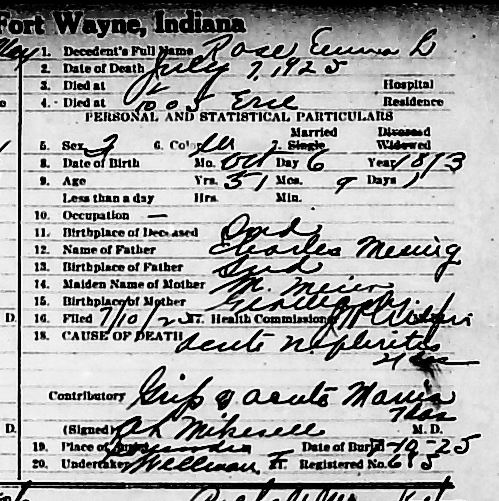 Fort Wayne, Indiana
1. Decedent's Full Name Rose, Emma L
2. Date of Death July 7, 1925
3. Died at Hospital
4. Died at 1005 Erie Residence
PERSONAL AND STATISTICAL PARTICULARS
Married Divorced
5. Sex 6. Color 7. Single Widowed
8. Date of Birth Mo. Oct Day 6 Year 1873
9. Age Yrs. 51 Mos. 9 Days 1
Less than a day Hrs. Min.
10. Occupation —
11. Birthplace of Deceased Ind
12. Name of Father Charles Mesing
13. Birthplace of Father Ind
14. Maiden Name of Mother M. Meier
15. Birthplace of Mother
D. 16. Filed 7/10/25 17. Health Commissioner
18. CAUSE OF DEATH
acute nephritis
Contributory Grip & acute Mania
D. (Signed) A H Mikesell M. D.
19. Place of Burial Date of Burial 7-10-25
20. Undertaker Wellman 21. Registered No. 693